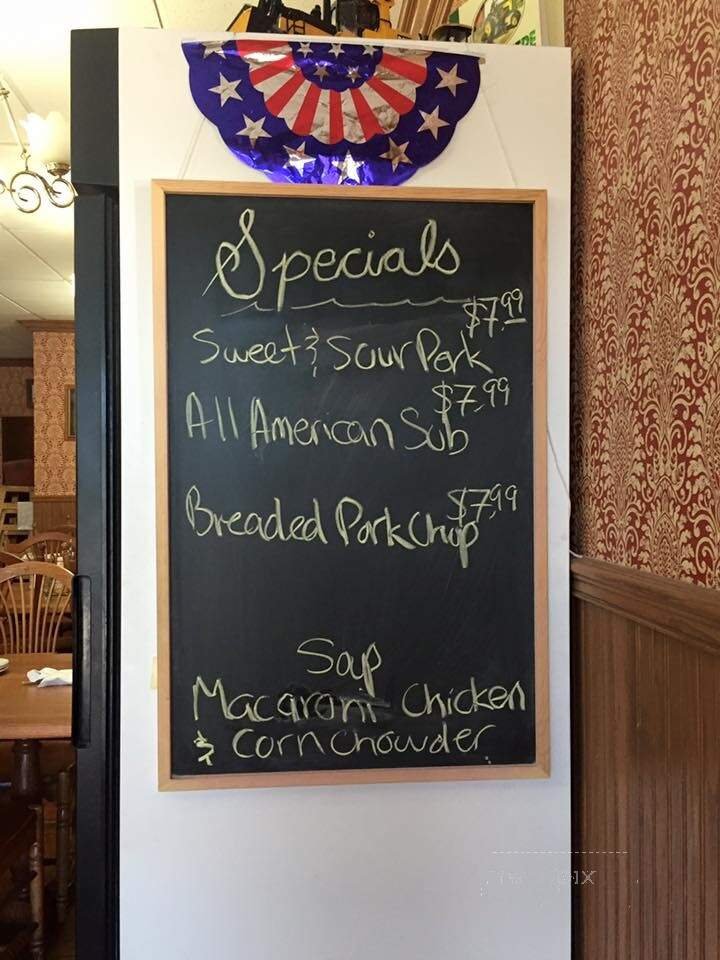 Specials
$7.99
Sweet & Sour Pork
$7.99
All American Sub
$7,99
Breaded Pork Chop
Soup
Macaroni Chicken
& Corn Chowder